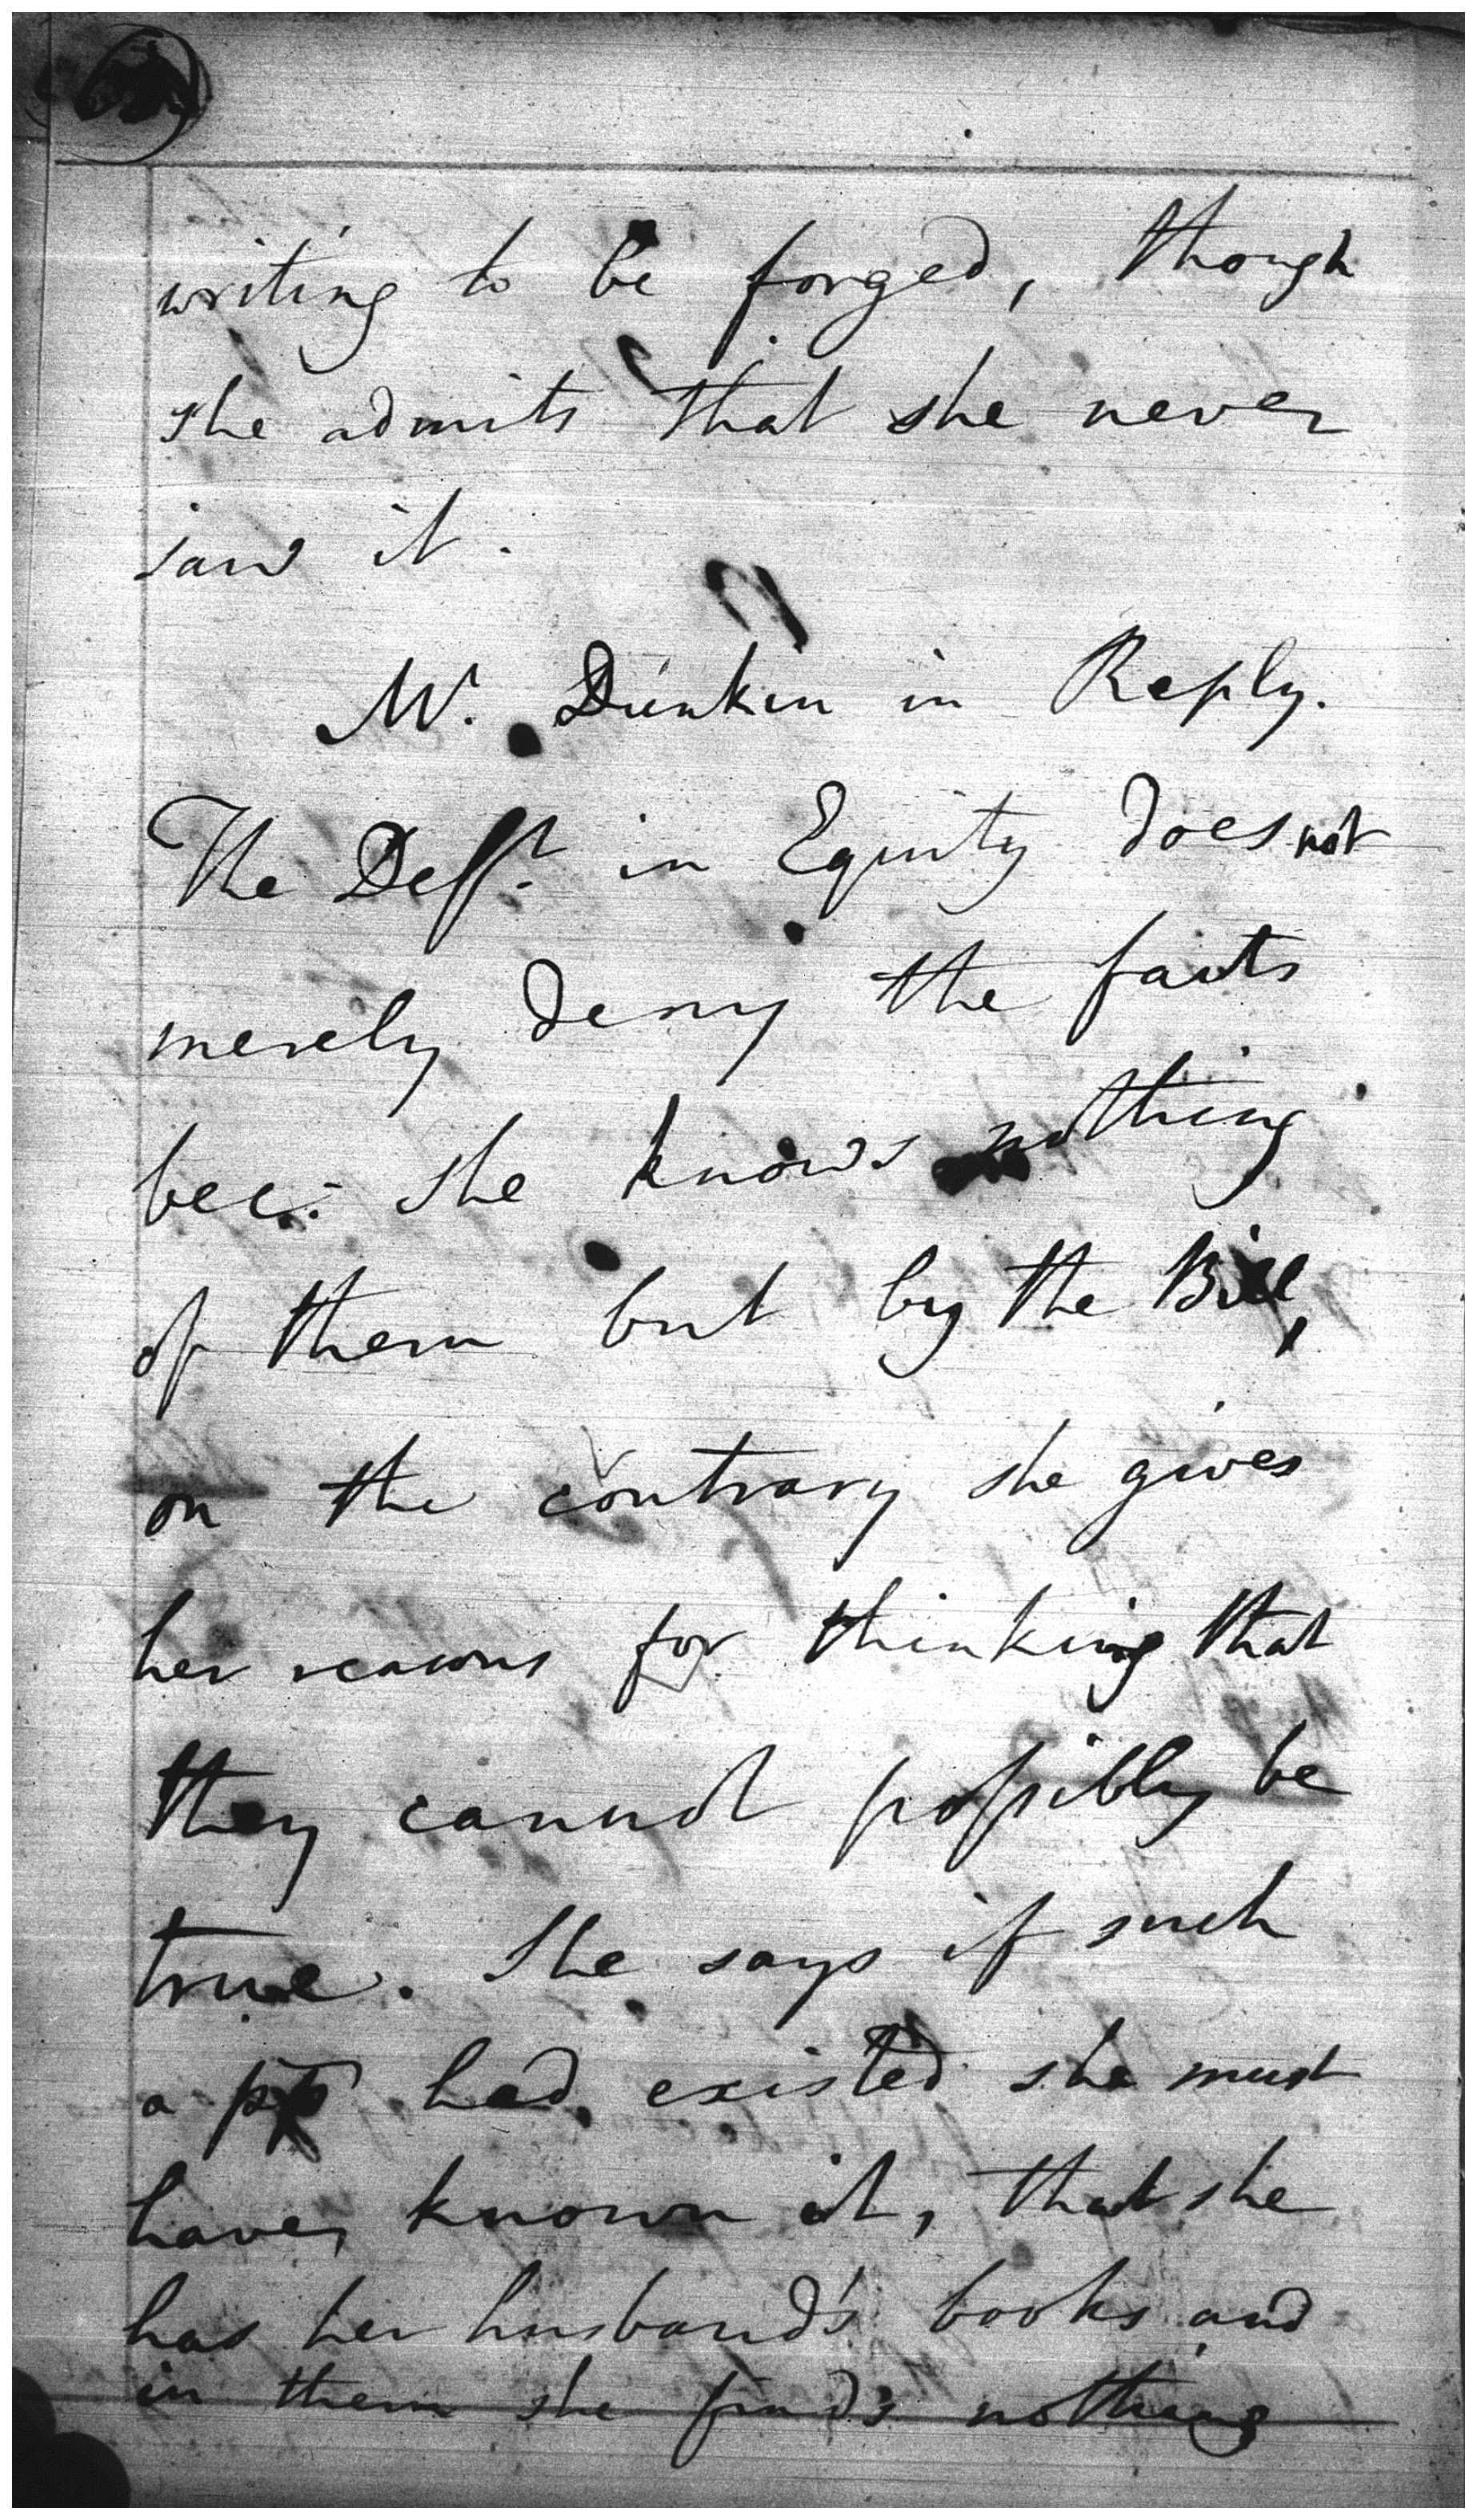 writing to be forged, though
she admits that she never
saw it.
Mr. Dunkin in Reply.
The Defft. in Equity does not
merely deny the facts
bec: she knows nothing
of them but by the Bill,
on the contrary she gives
her reasons for thinking that
they cannot possibly be
true. She says if such
a had existed she must
have known it, that she
has her husband's books and
in them she finds nothing